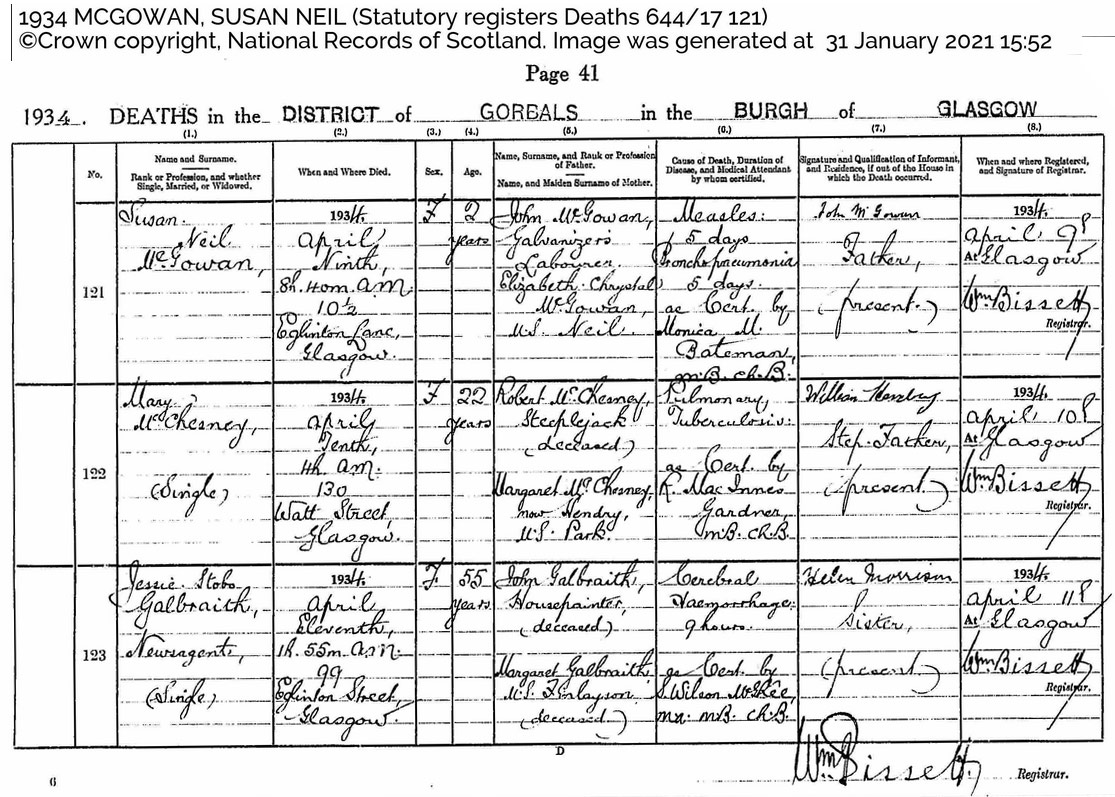 1934 MCGOWAN, SUSAN NEIL (Statutory registers Deaths 644/17 121)
©Crown copyright, National Records of Scotland. Image was generated at 31 January 2021 15:52
Page 41
1934. DEATHS in the DISTRICT of GORBALS in the BURGH of GLASGOW
(1.) (2.) (3.) (4.) (5.) (6.) (7.) (8.)
No.
Name and Surname.
Rank or Profession, and whether
Single, Married, or Widowed.
When and Where Died.
Sex.
Age.
Name, Surname, and Rank or Profession
of Father.
Name, and Maiden Surname of Mother.
Cause of Death, Duration of
Disease, and Medical Attendant
by whom certified.
Signature and Qualification of Informant,
and Residence, if out of the House in
which the Death occurred.
When and where Registered,
and Signature of Registrar.
121
Susan
Neil
McGowan,
1934.
April
Ninth,
8h. 40m. A.M.
10½
Eglinton Lane,
Glasgow.
F
2
years
John McGowan,
Galvanizer's
Labourer
Elizabeth Chrystal
McGowan,
M.S. Neil.
Measles:
5 days
Bronchopneumonia
5 days.
as Cert. by
Monica M.
Bateman,
M.B. Ch.B.
John McGowan
Father,
(present.)
1934.
April 9th
At Glasgow
Wm Bissett
Registrar.
122
Mary
McChesney,
(Single)
1934.
April
Tenth,
4h. A.M.
130
Watt Street,
Glasgow.
F
22
years
Robert McChesney,
Steeplejack
(deceased)
Margaret McChesney,
now Hendry,
M.S. Park.
Pulmonary
Tuberculosis:
as Cert. by
R. MacInnes
Gardner,
M.B. Ch.B.
William Hendry
Step-Father,
(present.)
1934.
April 10th
At Glasgow
Wm Bissett
Registrar.
123
Jessie Stobo
Galbraith,
Newsagent,
(Single)
1934.
April
Eleventh,
1h. 55m. A.M.
99
Eglinton Street,
Glasgow.
F.
55
years
John Galbraith,
Housepainter,
(deceased)
Margaret Galbraith,
M.S. Finlayson
(deceased)
Cerebral
Haemorrhage:
9 hours.
as Cert. by
S. Wilson McKee,
M.A. M.B. Ch.B.
Helen Morrison
Sister,
(present)
1934.
April 11th
At Glasgow
Wm Bissett
Registrar.
D
6
Wm Bissett, Registrar.